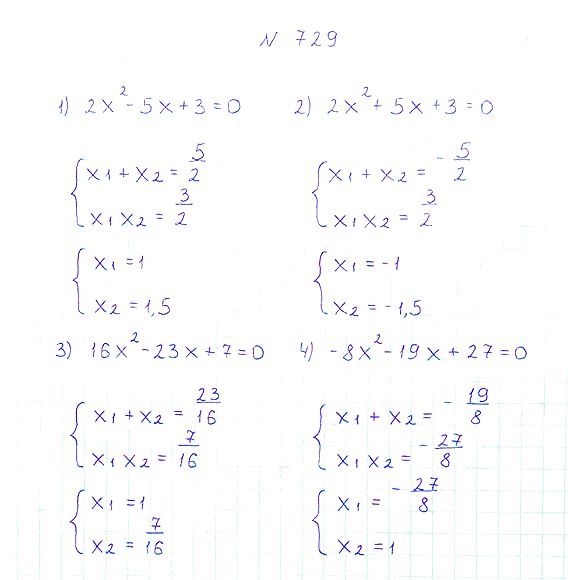 N 729
1) 2x² - 5x + 3 = 0
{ x1 + x2 = 5/2
{ x1 x2 = 3/2
{ x1 = 1
{ x2 = 1,5
2) 2x² + 5x + 3 = 0
{ x1 + x2 = - 5/2
{ x1 x2 = 3/2
{ x1 = -1
{ x2 = -1,5
3) 16x² - 23x + 7 = 0
{ x1 + x2 = 23/16
{ x1 x2 = 7/16
{ x1 = 1
{ x2 = 7/16
4) -8x² - 19x + 27 = 0
{ x1 + x2 = - 19/8
{ x1 x2 = - 27/8
{ x1 = - 27/8
{ x2 = 1